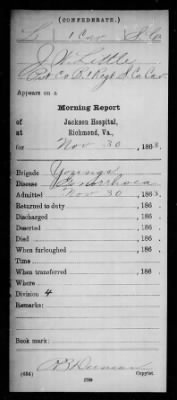 (CONFEDERATE.)
L 1 Cav S.C.
J. W. Little
Pvt Co D. 1 Regt S.C. Cav
Appears on a
Morning Report
of
Jackson Hospital,
at
Richmond, Va.,
for Nov 30, 1863.
Brigade Youngs
Disease
Admitted Nov 30, 1863.
Returned to duty , 186 .
Discharged , 186 .
Deserted , 186 .
Died , 186 .
When furloughed , 186 .
Time
When transferred , 186 .
Where
Division 4
Remarks:
Book mark:
(656) Copyist.